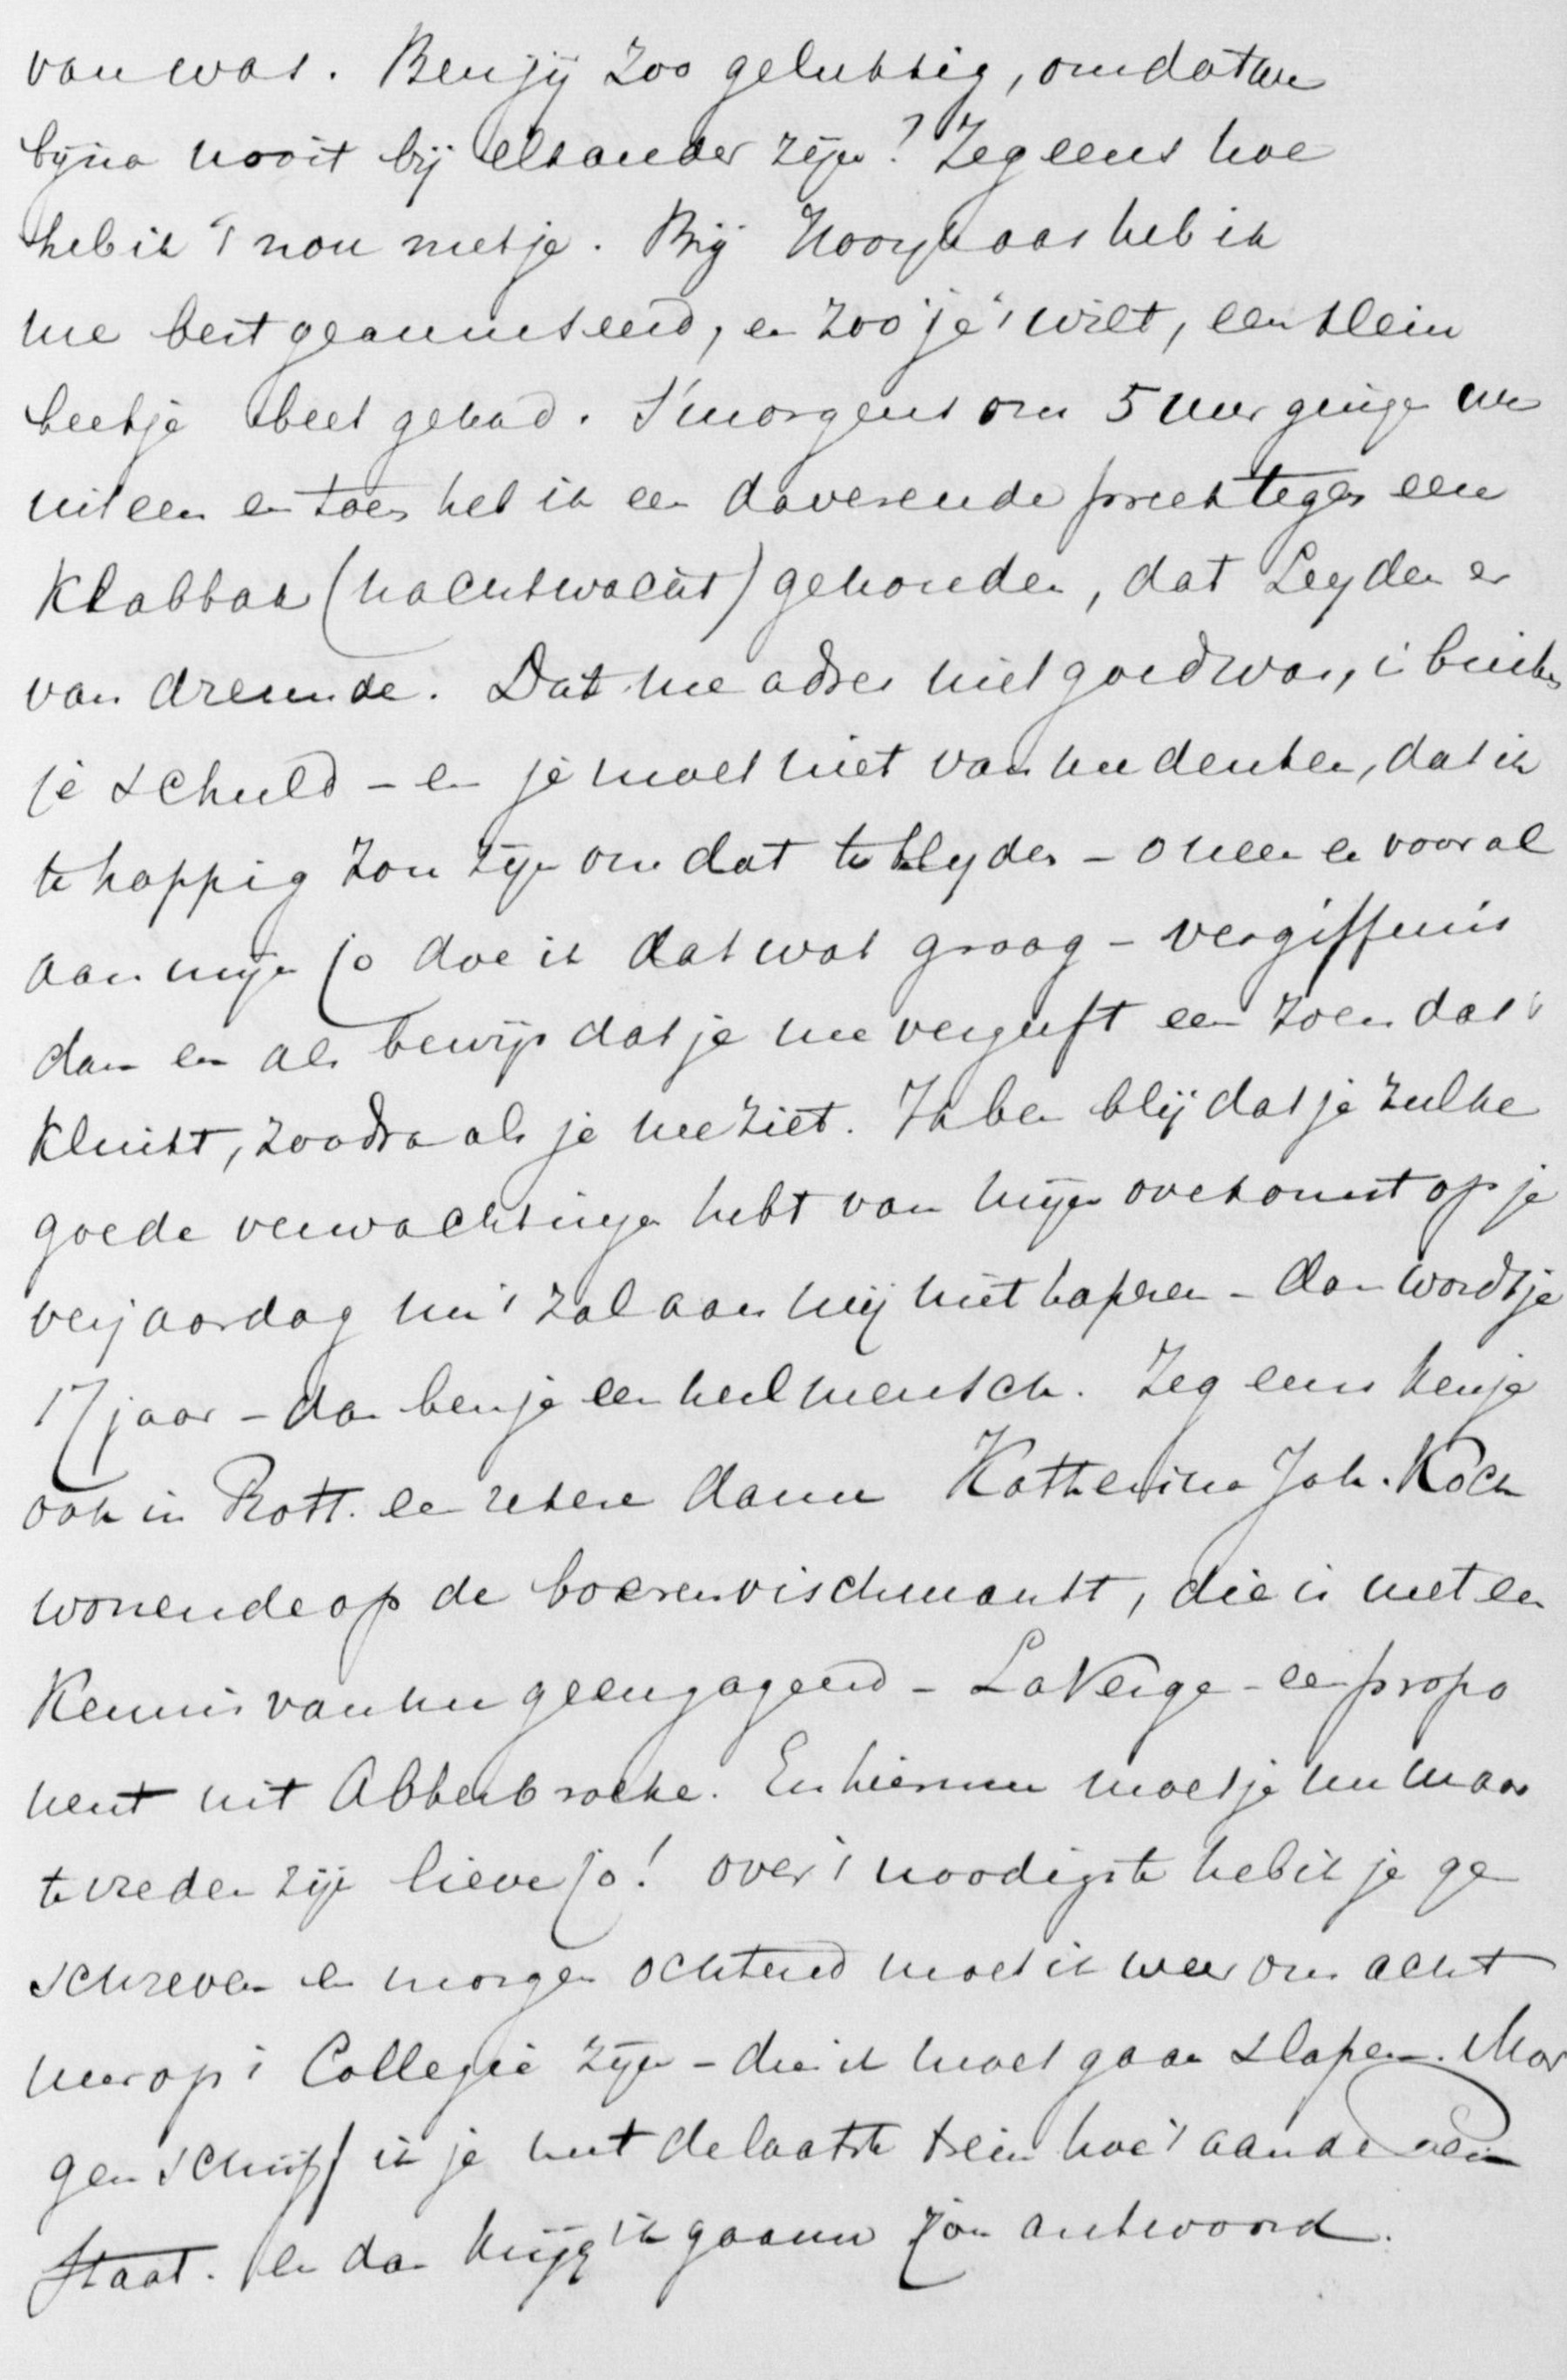 van was. Ben jij zoo gelukkig, omdat we
bijna nooit bij elkander zijn? Zeg eens hoe
heb ik 't nou met je. Bij Hooykaas heb ik
me best geamuseerd, en zoo je 't wilt, een klein
beetje beet gehad. 's Morgens om 5 uur gingen we
uit een en toen heb ik een daverende preek tegen een
Klabbak (nachtwacht) gehouden, dat Leyden er
van dreunde. Dat me adres niet goed was, is buiten
je schuld - en je moet niet van me denken, dat ik
te happig zou zijn om dat te belyden - o neen en vooral
aan mijn Jo doe ik dat wat graag - vergiffenis
dan en als bewijs dat je me vergeeft een zoen dat 't
klinkt, zoodra als je me ziet. Ik ben blij dat je zulke
goede verwachtingen hebt van mijn overkomst op je
verjaardag nu 't zal aan mij niet haperen - dan wordt je
17 jaar - dan ben je een heel mensch. Zeg eens ken je
ook in Rott. een zekere dame Katherina Joh. Koch
wonende op de boerenvischmarkt, die is met een
Kennis van me geengageerd - La Verge - een propo
nent uit Abbenbroeke. En hiermee moet je nu maar
tevreden zijn lieve Jo! over 't noodigste heb ik je ge
schreven en morgen ochtend moet ik weer om acht
uur op 't Collegie zijn - dus ik moet gaan slapen. Mor
gen schrijf ik je met de laatste trein hoe 't aan de
staat. en dan krijg ik gaauw zoo'n antwoord.